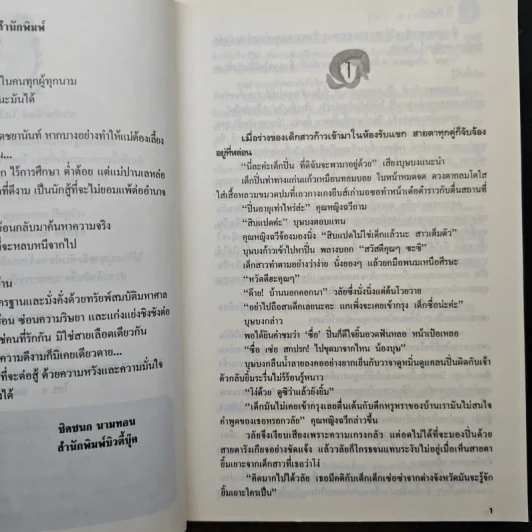 สำนักพิมพ์
ในคนทุกผู้ทุกนาม
นะมันได้
ดชยานันท์ หากบางอย่างทำให้แม่ต้องเลี้ยง
ไร้การศึกษา ต่ำต้อย แต่แม่ปานเลหล่อ
ที่ดีงาม เป็นนักสู้ที่จะไม่ยอมแพ้ต่ออำนาจ
ย้อนกลับมาค้นหาความจริง
ที่จะหลบหนีจากไป
ครฐานและมั่งคั่งด้วยทรัพย์สมบัติมหาศาล
ซ่อนความริษยา และแก่งแย่งชิงชังต่อ
ใช่คนที่รักกัน มิใช่สายเลือดเดียวกัน
ความดีงามก็มิเคยเดียวดาย...
ที่จะต่อสู้ ด้วยความหวังและความมั่นใจ
ชิดชนก นามทอน
สำนักพิมพ์บิวตี้บุ๊ค
1
เมื่อร่างของเด็กสาวก้าวเข้ามาในห้องรับแขก สายตาทุกคู่ก็จับจ้อง
อยู่ที่หล่อน
“นี่ละค่ะเด็กปิ่น ที่ดิฉันจะพามาอยู่ด้วย” เสียงบุษบงแนะนำ
เด็กปิ่นทำทางแก่นแก้วเหมือนทอมบอย ใบหน้าหมดจด ดวงตากลมโตใส
ใส่เสื้อหลวมขมวดปมที่เอวกางเกงยีนส์เก่ามอซอทำหน้าเด๋อด๋าราวกับตื่นสถานที่
“ปิ่นอายุเท่าไหร่ล่ะ” คุณหญิงฉวีถาม
“สิบแปดค่ะ” บุษบงตอบแทน
คุณหญิงฉวีจ้องมองนิ่ง “สิบแปดไม่ใช่เด็กแล้วนะ สาวเต็มตัว”
บุษบงก้าวเข้าไปหาปิ่น พลางบอก “สวัสดีคุณๆ ซะซิ”
เด็กสาวทำตามอย่างว่าง่าย นั่งยองๆ แล้วยกมือพนมเหนือศีรษะ
“หวัดดีฮะคุณๆ”
“ต๊าย! บ้านนอกคอกนา” วลัยซึ่งนั่งนิ่งแต่ต้นไวยวาย
“อย่าไปถือสาเด็กเลยนะคะ แกเพิ่งจะเคยเข้ากรุง เด็กซื่อน่ะค่ะ”
บุษบงกล่าว
พอได้ยินคำชมว่า ‘ซื่อ’ ปิ่นก็ดีใจยิ้มอวดฟันหลอ หน้าเป้อเหลอ
“ซื่อ เซ่อ สกปรก! ไปขุดมาจากไหน น้องบุษ”
บุษบงกลืนน้ำลายลงคออย่างยากเย็นกับวาจาดูหมิ่นดูแคลนปิ่นผิดกับเจ้า
ตัวกลับยิ้มระรื่นไม่รู้ร้อนรู้หนาว
“โง่ด้วย ดูซิว่าแล้วยังยิ้ม”
“เด็กมันไม่เคยเข้ากรุงเลยตื่นเต้นกับตึกหรูหราของบ้านเรามันไม่สนใจ
คำพูดของเธอหรอกวลัย” คุณหญิงฉวีกล่าวขึ้น
วลัยจึงเงียบเสียงเพราะความเกรงกลัว แต่อดไม่ได้ที่จะมองปิ่นด้วย
สายตารังเกียจอย่างชัดแจ้ง แล้ววลัยก็โกรธจนแทบระงับไม่อยู่เมื่อเห็นสายตา
ยิ้มเยาะจากเด็กสาวที่เธอว่าโง่
“คิดมากไปได้วลัย เธอมีคดีกับเด็กเด็กเซ่อซ่าจากต่างจังหวัดมันจะรู้จัก
ยิ้มเยาะใครเป็น”
1